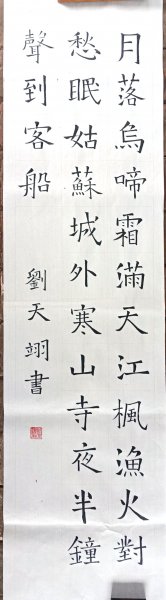 月落烏啼霜滿天江楓漁火對
愁眠姑蘇城外寒山寺夜半鐘
聲到客船
劉天翊書